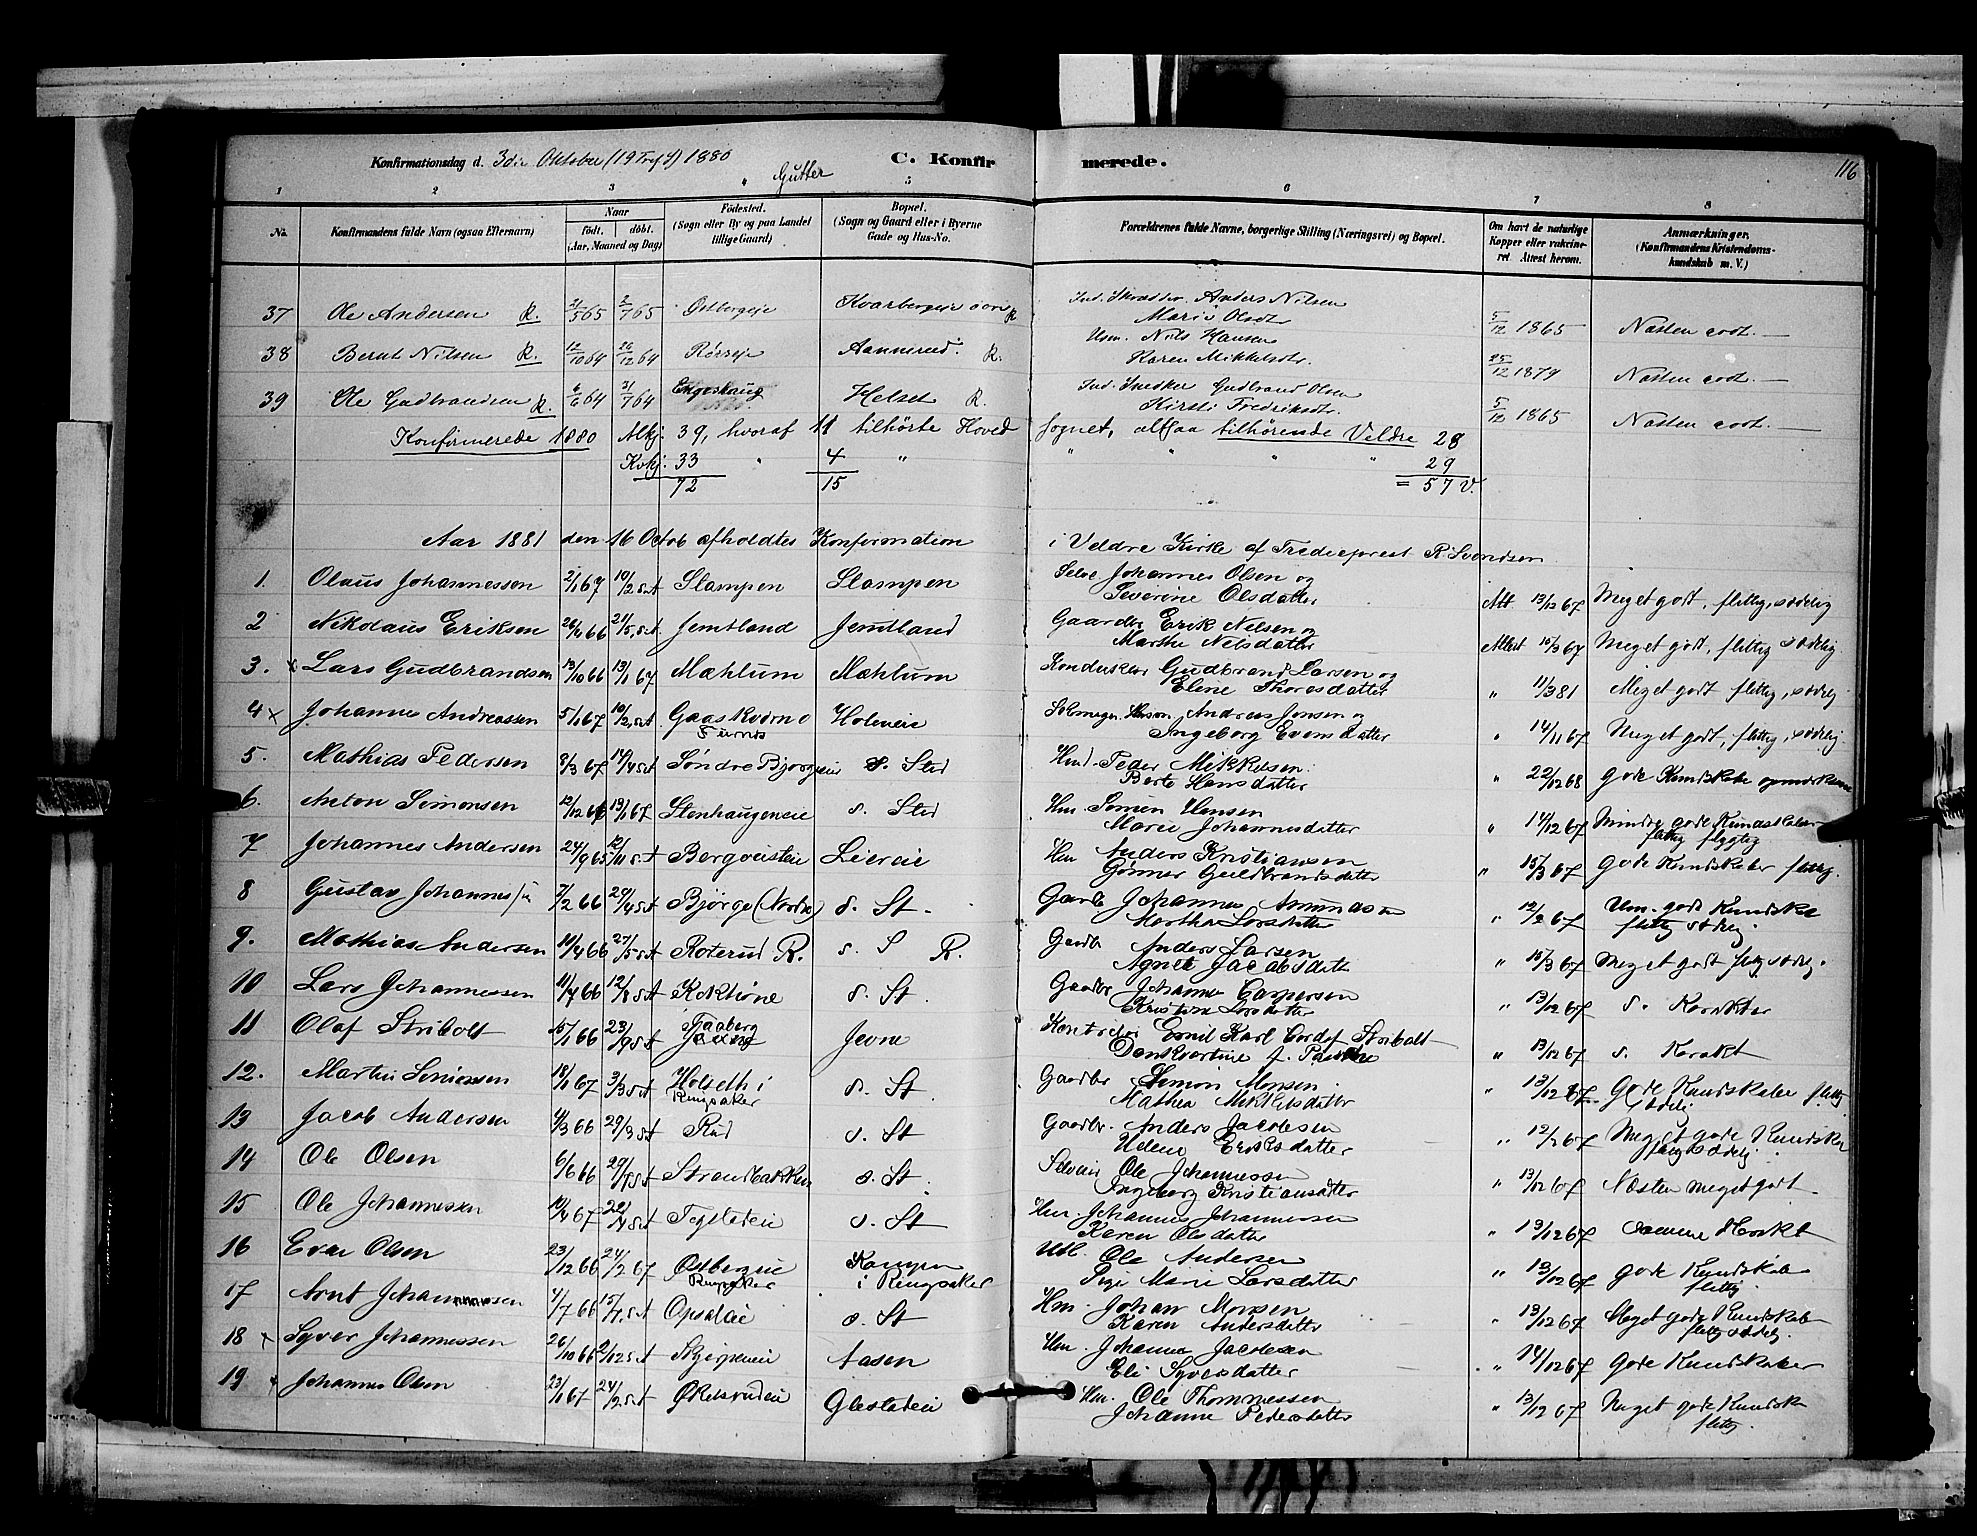 Konfirmationsdag d. 3die Oktober (19 Tref) 1880 " Gutter C. Konfirmerede. 116
1 2 3 5 6 7 8
No. Konfirmandens fulde Navn (ogsaa Efternavn) Naar født. døbt. (Aar, Maaned og Dag) Fødested. (Sogn eller By og paa Landet tillige Gaard) Bopæl. (Sogn og Gaard eller i Byerne Gade og Hus-No. Forældrenes fulde Navne, borgerlige Stilling (Næringsvei) og Bopæl. Om havt de naturlige Kopper eller vakcineret Attest herom. Anmærkninger. (Konfirmandens Kristendomskundskab m. V.)
37 Ole Andersen R. 21/5 65 2/7 65 Østbergeie Kvarbergeie R Ind. Skrædder Anders Nilsen
Marie Olsdtr 5/12 1865 Næsten godt. —
38 Bernt Nilsen R. 12/10 64 26/12 64 Rørseie Aannerud. R. Usm. Nils Hansen
Karen Mikkelsdtr. 25/12 1879 Næsten godt. —
39 Ole Gudbrandsen R. 6/6 64 31/7 64 Engeshaug Helset R. Ind. Snedker Gudbrand Olsen
Kirsti Fredriksdtr. 5/12 1865 Næsten godt. —
Konfirmerede 1880 Mkj. 39, hvoraf 11 tilhørte Hovedsognet, altsaa tilhørende Veldre 28
Kvkj. 33 " 4 " " " " " 29
72 15 = 57 V.
Aar 1881 den 16 Octob afholdtes Konfirmation i Veldre Kirke af Sogneprest R. Svendsen
1. Olaus Johannessen 2/1 67 10/2 s.A Slampen Slampen Selve Johannes Olsen og
Severine Olsdatter Att 13/12 67 Meget godt, flittig, sædelig
2 Nikolaus Eriksen 26/4 66 21/5 s.A Jemtland Jemtland Gaardbr Erik Nelsen og
Marthe Nelsdatter Attest 15/3 67 Meget godt, flittig sædelig
3. x Lars Gudbrandsen 13/10 66 13/1 67 Mæhlum Mæhlum Konduktør Gudbrand Larsen og
Elene Thoresdatter " 11/3 81 Meget godt flittig, sædelig
4 x Johannes Andreassen 5/1 67 10/2 s.A Gaaskværn Holmeie Andreas Jonsen og
Furnes Ingeborg Evensdatter " 14/11 67 Meget godt, flittig, sædelig
5. Mathias Pedersen 8/3 67 14/4 s.A Søndre Bjørgeeie s. Sted Hmd Peder Mikkelsen
Berte Hansdatter " 22/12 68 gode Kundskaber
6. Anton Simonsen 12/12 66 13/1 67 Stenhaugeneie s. Sted Hm Simen Hansen
Marie Johannesdatter " 14/12 67 Mindre gode Kundskaber
flittig
7 Johannes Andersen 24/9 65 12/11 s.A Bergvisteie Liereie Hm Anders Kristiansen
Gønner Guldbrandsdatter " 15/3 67 gode Kundskaber flittig.
8 Gustav Johannessen 7/2 66 29/4 s.A Bjørge (Nordre) s. St. Gaardbr Johannes Amundsen
Martha Larsdatter " 12/2 67 Um. gode Kundskaber
flittig sædelig.
9. Mathias Andersen 10/4 66 27/5 s.A Roterud R. s. S R. Gaardbr Anders Larsen
Agnete Jacobsdatter " 15/3 67 Meget godt flittig sædelig.
10 Lars Johannessen 11/7 66 12/8 s.A Koklume s. St. Gaardbr Johannes Caspersen
Kristine Larsdatter " 13/12 67 s. Karakter
11 Olaf Stribolt 15/1 66 23/9 s.A Faaberg Jevne Emil Karl Stribolt
" 13/12 67 s. Karakt
12. Martin Simensen 18/1 67 3/3 s.A Holseth i s. St. Gaardbr Simon Monsen
Ringsaker Mathea Mikkelsdatter " 13/12 67 Gode Kundskaber flittig
sædelig
13 Jacob Andersen 4/3 66 29/3 s.A Rud s. St Gaardbr. Anders Jacobsen
Helene Eriksdatter " 12/2 67 Meget gode Kundskaber
flittig sædelig.
14 Ole Olsen 6/6 66 29/7 s.A Strandbakken s. St. Selveier Ole Johannessen
Ingeborg Kristiansdatter " 13/12 67 Næsten meget godt
15 Ole Johannessen 10/4 67 22/4 s.A Teglstadeie s. St Hm. Johannes Johannessen
Karen Olsdatter " 13/12 67 samme Karakt
16 Evar Olsen 23/12 66 24/2 67 Østbergeie Kampen Uæ. Ole Andersen
Ringsaker i Ringsaker Pige Marie Larsdatter " 13/12 67 gode Kundskab
flittig
17 Arnt Johannessen 4/7 66 15/7 s.A Opsaleie s. St Hm. Johan Monsen
Karen Andersdatter " 13/12 67 Meget gode Kundskab
flittig sædelig.
18 x Syver Johannessen 26/10 66 2/12 s.A Skjerpeneie Aasen Hm. Johannes Jacobsen
Eli Syversdatter " 14/12 67 gode Kundskaber
19 x Johannes Olsen 23/1 67 24/2 s.A Økelsrudeie Glestadeie Hm. Ole Thommessen
Johanne Pedersdatter " 13/12 67 Meget gode Kundskaber
flittig.